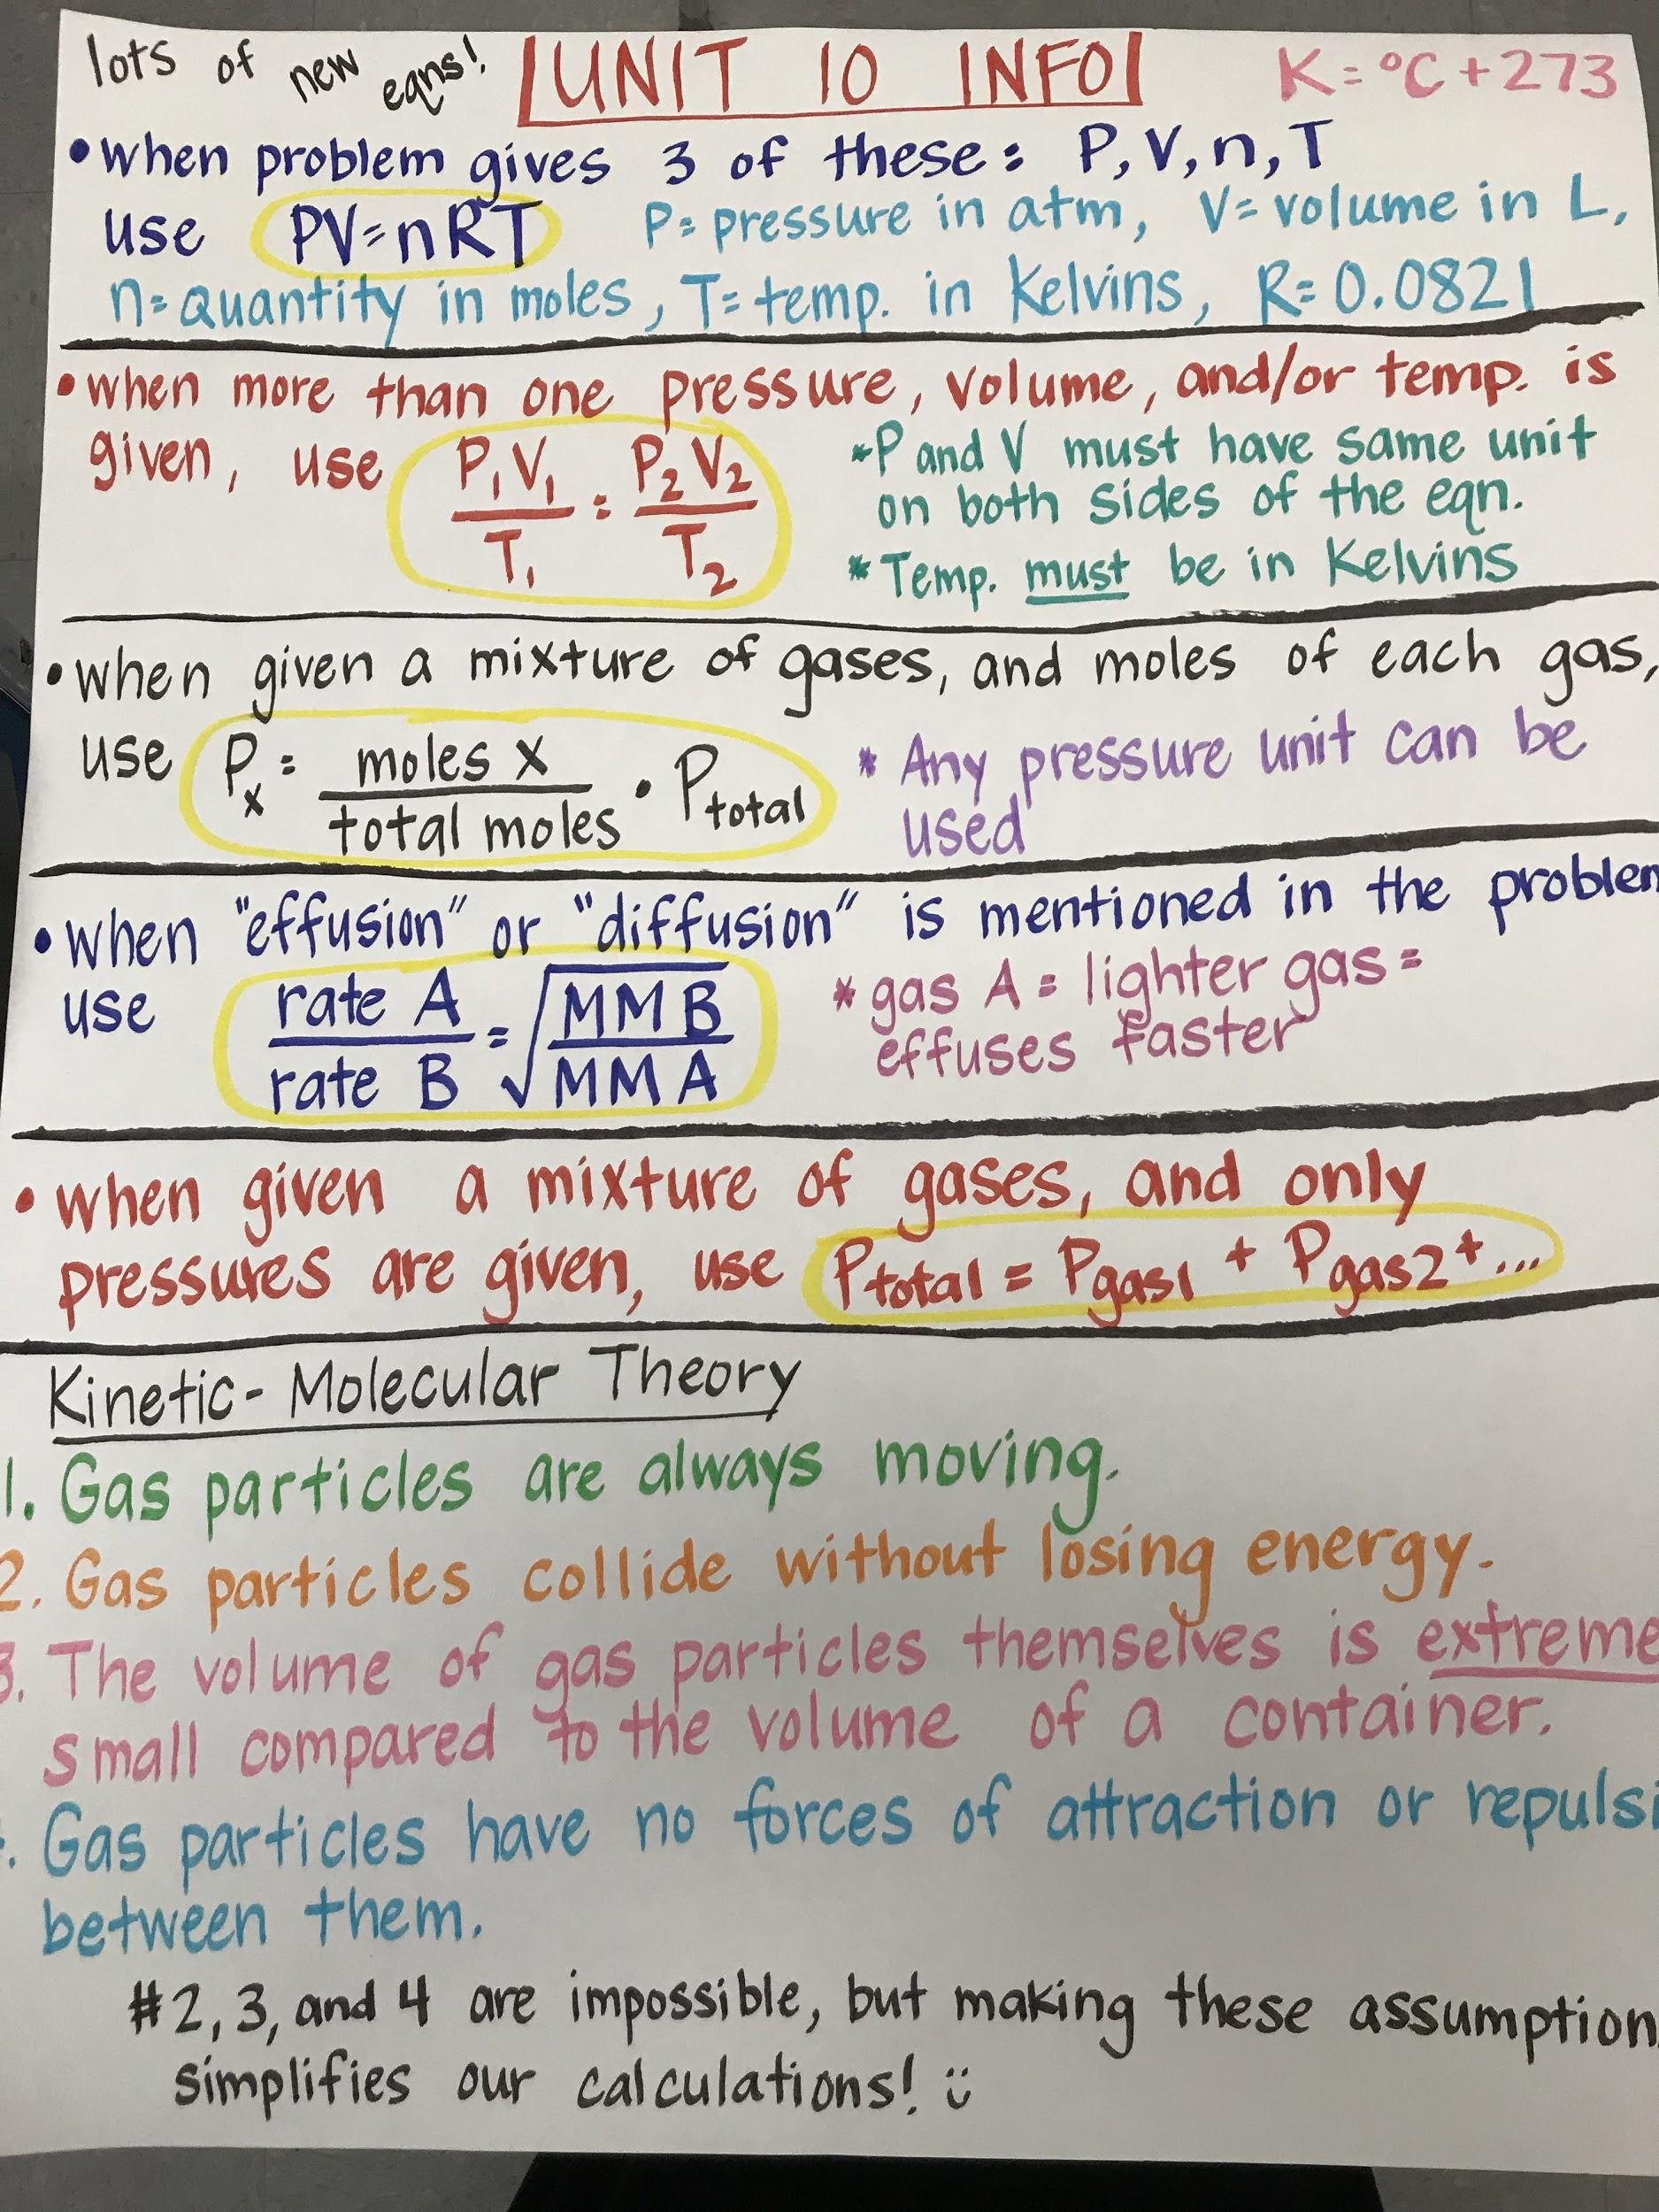 lots of new eqns! UNIT 10 INFO K = °C + 273
• when problem gives 3 of these: P, V, n, T
use PV = nRT P = pressure in atm, V = volume in L,
n = quantity in moles, T = temp. in Kelvins, R = 0.0821
• when more than one pressure, volume, and/or temp. is
given, use P₁V₁/T₁ = P₂V₂/T₂
* P and V must have same unit
on both sides of the eqn.
* Temp. must be in Kelvins
• when given a mixture of gases, and moles of each gas,
use Pₓ = moles X/total moles • Ptotal
* Any pressure unit can be
used
• when "effusion" or "diffusion" is mentioned in the problem
use rate A/rate B = √(MM B/MM A)
* gas A = lighter gas =
effuses faster
• when given a mixture of gases, and only
pressures are given, use Ptotal = Pgas1 + Pgas2 + ...
Kinetic-Molecular Theory
1. Gas particles are always moving.
2. Gas particles collide without losing energy.
3. The volume of gas particles themselves is extreme
small compared to the volume of a container.
. Gas particles have no forces of attraction or repulsi
between them.
#2, 3, and 4 are impossible, but making these assumption
simplifies our calculations! :)